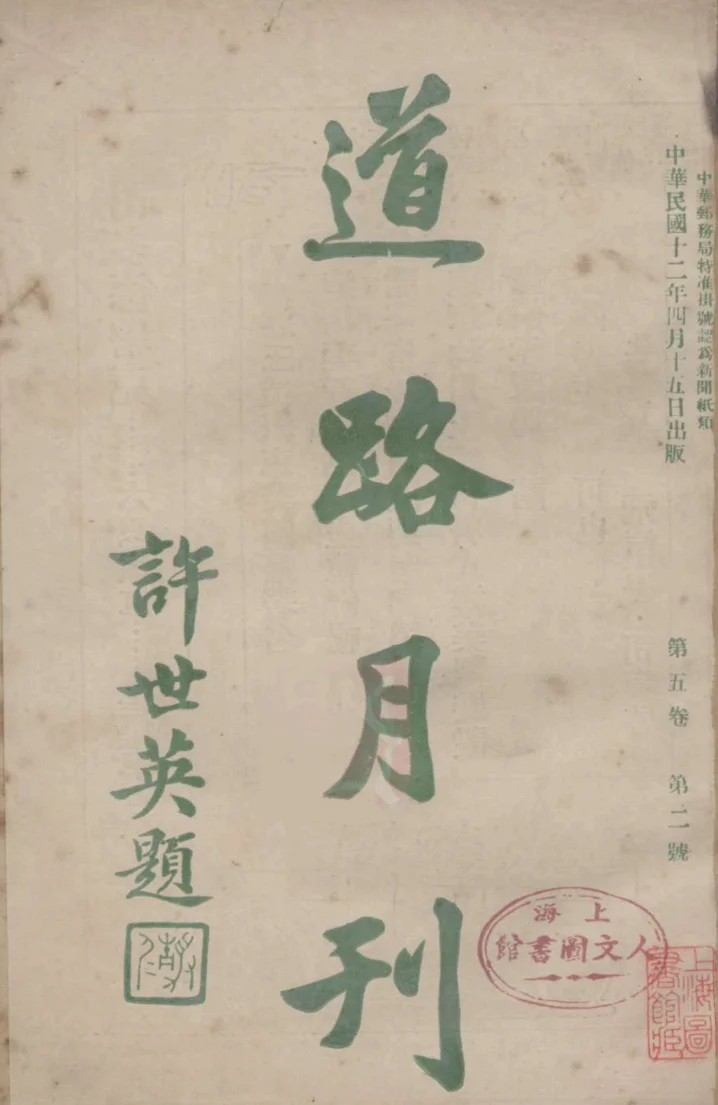 中華郵務局特准掛號認為新聞紙類
中華民國十二年四月十五日出版
第五卷 第二號
道路月刊
許世英題
上海
人文圖書館
上海圖
書館藏